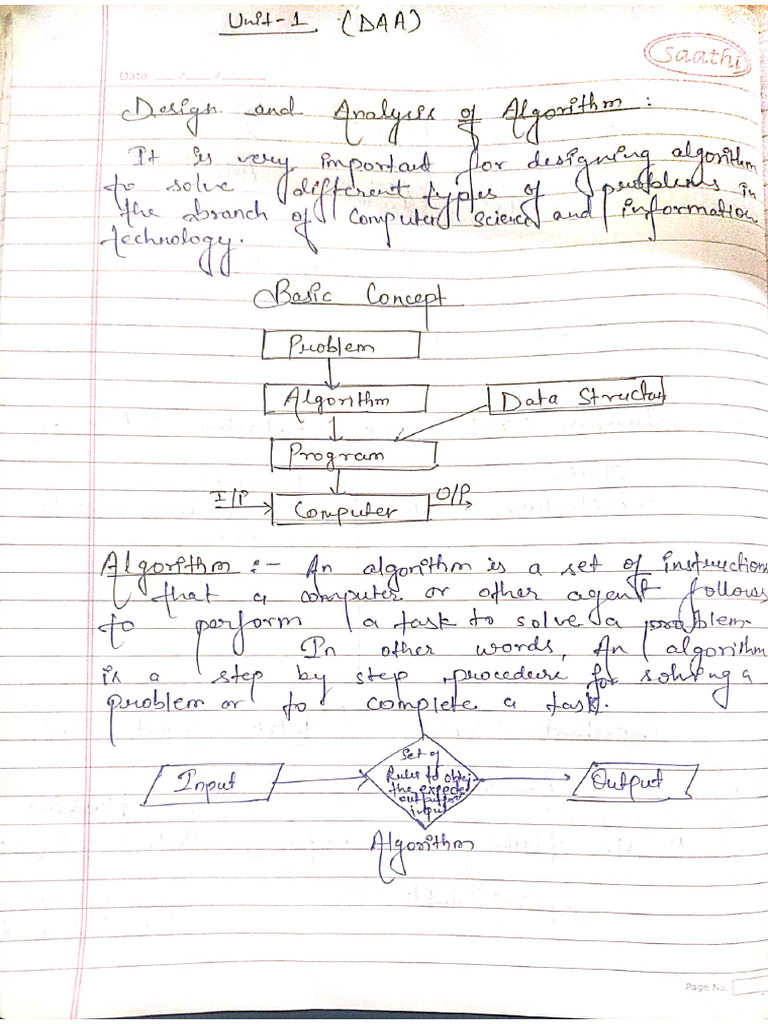 Unit-1 (DAA)
Saathi
Date ___/___/___
Design and Analysis of Algorithm :
It is very important for designing algorithm
to solve different types of problems in
the branch of Computer Science and information
technology.
Basic Concept
Problem
Algorithm
Data Structure
Program
I/P
O/P
Computer
Algorithm :- An algorithm is a set of instructions
that a computer or other agent follows
to perform a task to solve a problem.
In other words, An algorithm
is a step by step procedure for solving a
problem or to complete a task.
Set of
Input
Rules to obtain
Output
the expected
output for
input
Algorithm
Page No.